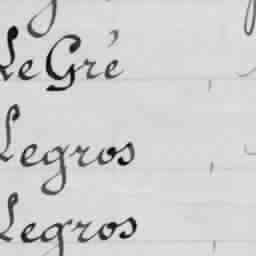 LeGré
Legros
Legros